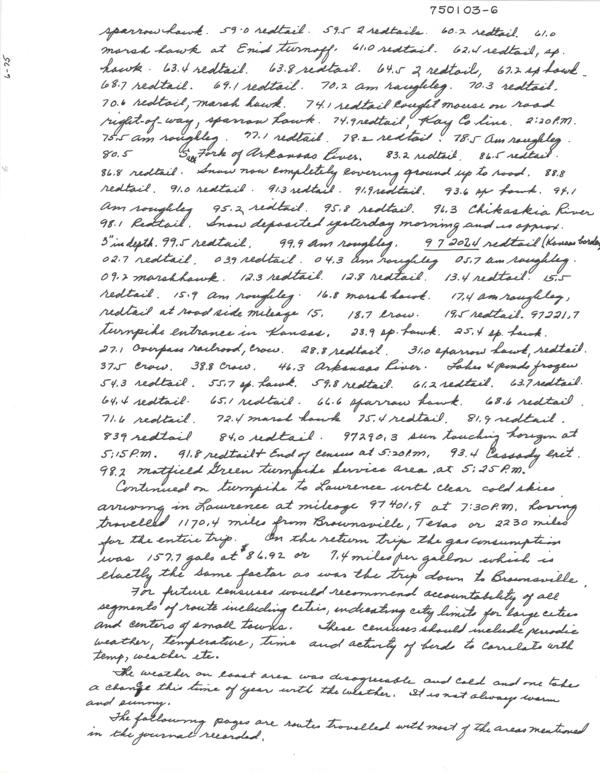 750103-6
6-75
sparrow hawk. 59.0 redtail. 59.5 2 redtails. 60.2 redtail. 61.0
marsh hawk at Enid turnoff. 61.0 redtail. 62.4 redtail, sp.
hawk. 63.4 redtail. 63.8 redtail. 64.5 2 redtails, 67.2 sp hawk.
68.7 redtail. 69.1 redtail. 70.2 am roughleg. 70.3 redtail.
70.6 redtail, marsh hawk. 74.1 redtail caught mouse on road
right-of way, sparrow hawk. 74.9 redtail, Kay Co line. 2:20 P.M.
75.5 am roughleg. 77.1 redtail. 78.2 redtail. 78.5 am roughleg.
80.5 Fork of Arkansas River. 83.2 redtail. 86.5 redtail.
86.8 redtail. Snow now completely covering ground up to road. 88.8
redtail. 91.0 redtail. 91.3 redtail. 91.9 redtail. 93.6 sp hawk. 94.1
am roughleg 95.2 redtail. 95.8 redtail. 96.3 Chikaskia River
98.1 Redtail. Snow deposited yesterday morning and is approx.
3" in depth. 99.5 redtail. 99.9 am roughleg. 97206.4 redtail (Kansas border)
02.7 redtail. 03.9 redtail. 04.3 am roughleg 05.7 am roughleg.
09.2 marsh hawk. 12.3 redtail. 12.8 redtail. 13.4 redtail. 15.5
redtail. 15.9 am roughleg. 16.8 marsh hawk. 17.4 am roughleg,
redtail at road side mileage 15. 18.7 crow. 19.5 redtail. 97221.7
turnpike entrance in Kansas. 23.9 sp. hawk. 25.4 sp. hawk.
27.1 overpass railroad, crow. 28.8 redtail. 31.0 sparrow hawk, redtail.
37.5 crow. 38.8 crow. 46.3 Arkansas River. Lakes & ponds frozen
54.3 redtail. 55.7 sp. hawk. 59.8 redtail. 61.2 redtail. 63.7 redtail.
64.4 redtail. 65.1 redtail. 66.6 sparrow hawk. 68.6 redtail.
71.6 redtail. 72.4 marsh hawk 75.4 redtail. 81.9 redtail.
83.9 redtail 84.0 redtail. 97290.3 sun touching horizon at
5:15 P.M. 91.8 redtail & End of census at 5:20 P.M. 93.4 Cassody exit.
98.2 Matfield Green turnpike Service area at 5:25 P.M.
Continued on turnpike to Lawrence with clear cold skies
arriving in Lawrence at mileage 97401.9 at 7:30 P.M. having
travelled 1170.4 miles from Brownsville, Texas or 2230 miles
for the entire trip. On the return trip the gas consumption
was 157.7 gals at $86.92 or 7.4 miles per gallon which is
exactly the same factor as was the trip down to Brownsville.
For future censuses would recommend accountability of all
segments of route including cities, indicating city limits for large cities
and centers of small towns. These censuses should include periodic
weather, temperature, time and activity of birds to correlate with
temp, weather etc.
The weather on coast area was disagreeable and cold and one takes
a chance this time of year with the weather. It is not always warm
and sunny.
The following pages are routes travelled with most of the areas mentioned
in the journal recorded.